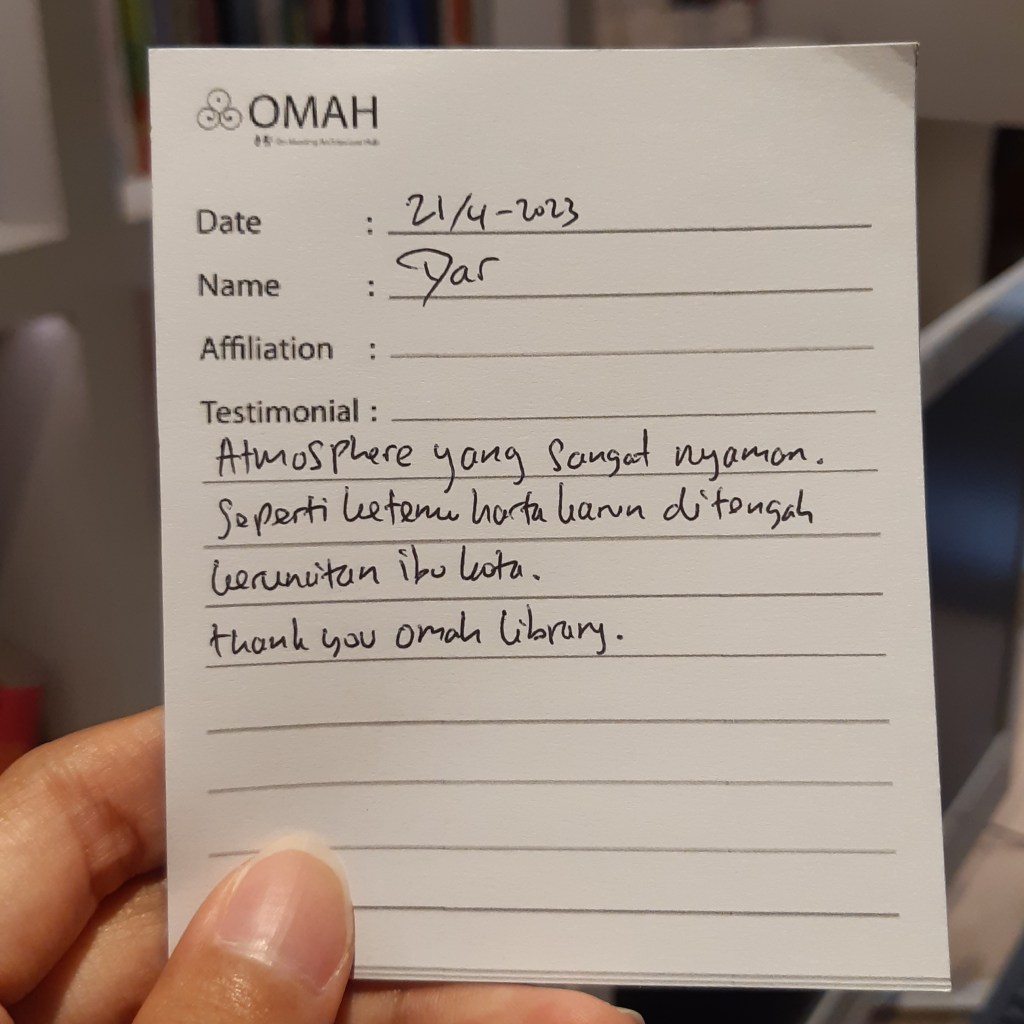 OMAH
Date : 21/4-2023
Name : Dar
Affiliation :
Testimonial :
Atmosphere yang sangat nyaman.
Seperti ketemu harta karun ditengah
keruwitan ibu kota.
thank you omah library.